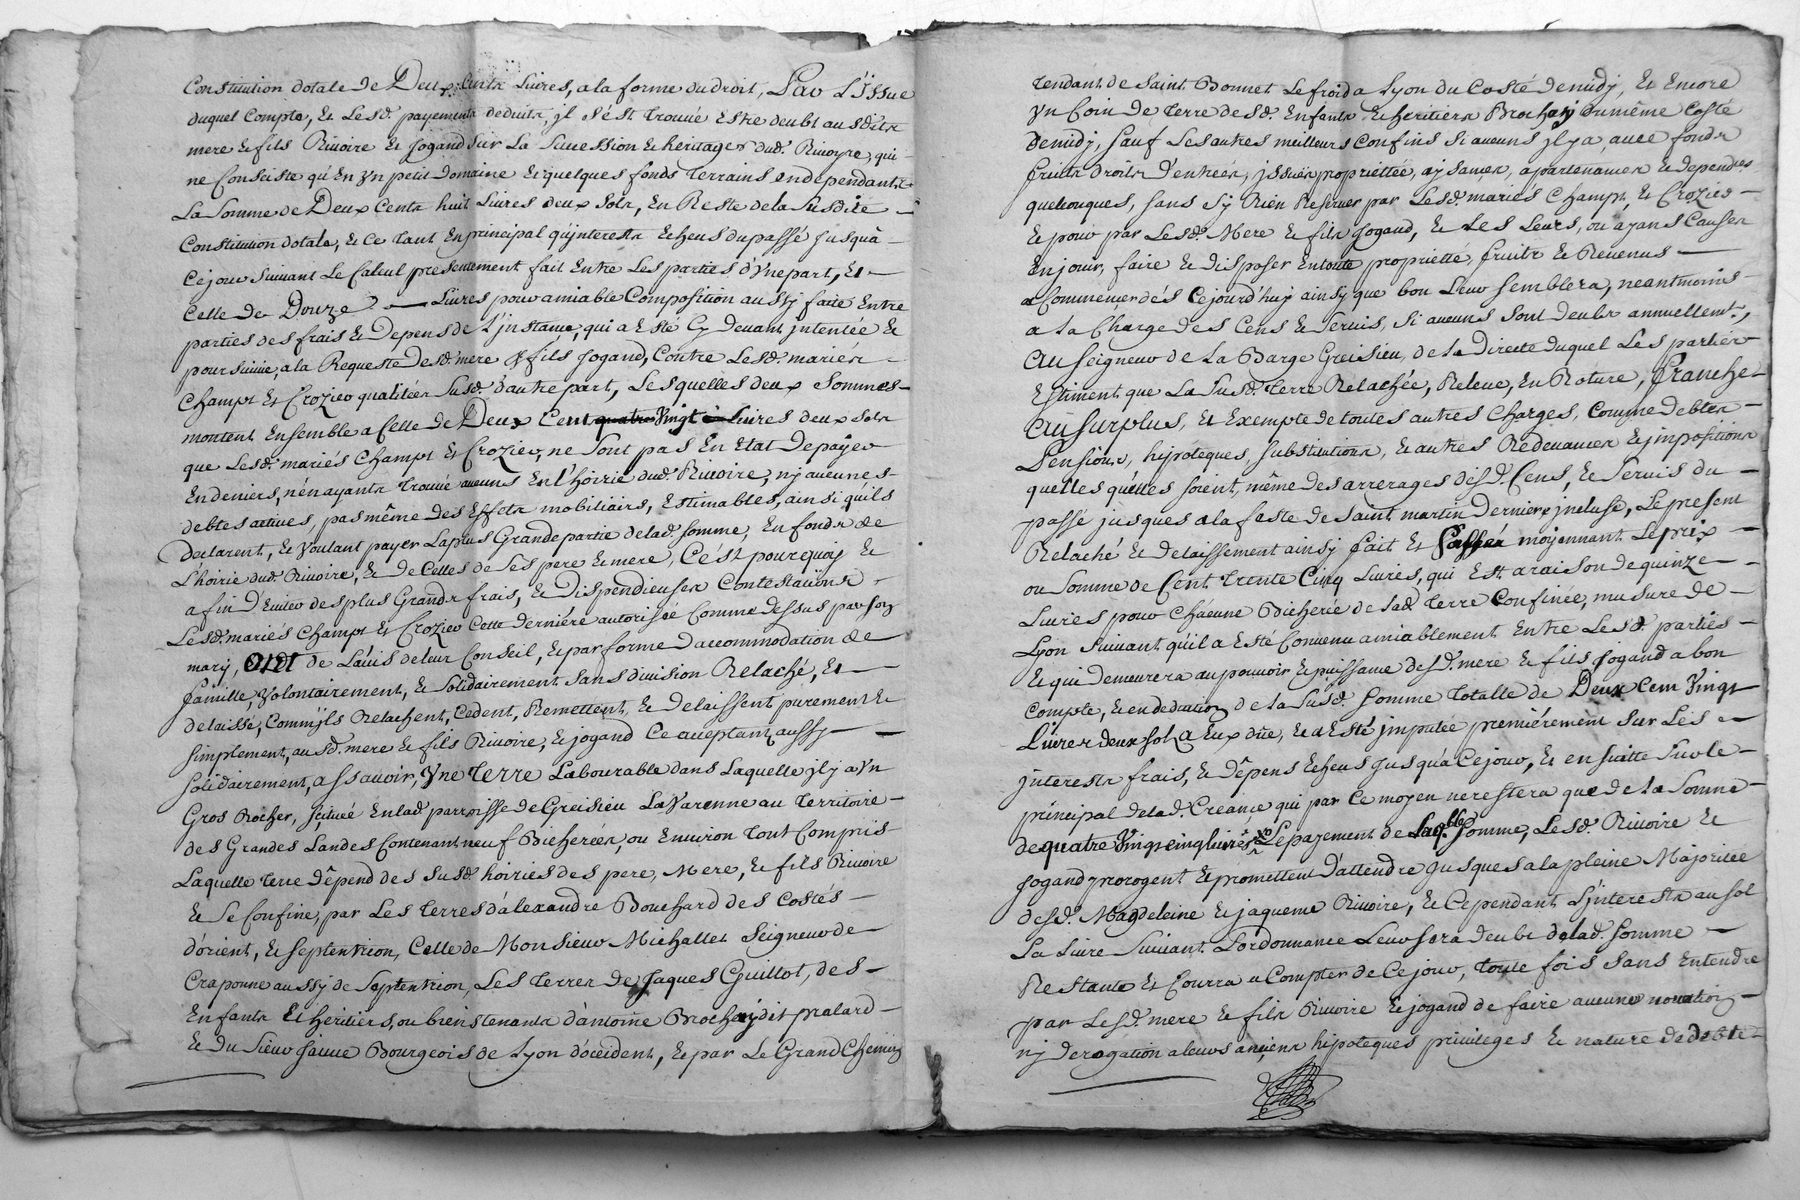 Constitution dotale de Deux Cents Livres, a la forme du droit, Par L'issue
duquel Compte, Et Lesd. payements deduits, jl s'est Trouvé Estre deubt ausdits
mere & fils Rivoire & Jogand sur La Succession & heritages dud. Rivoyre, qui
ne Consciste qu'En Yn petit Domaine Et quelques fonds Terrains endependants
La Somme de Deux Cents huit Livres deux sols, En Reste de la Susdite
Constitution dotale, & Ce Tant En principal qu'jnterests Echeus du passé jusqu'a
Ce jour suivant Le Calcul presentement fait Entre Les parties d'Yne part, Et
Celle de Douze Livres pour amiable Composition aussy faite Entre
parties des frais & Depens de L'jnstance, qui a Esté Cy devant jntentée &
poursuivie, a la Requeste desd. mere & fils Jogand, Contre Lesd. mariés
Champt Et Crozier qualitées Susd. d'autre part, Lesquelles deux Sommes
montent Ensemble a Celle de Deux Cent quatre Vingt Livres deux sols
que Lesd. mariés Champt Et Crozier, ne Sont pas En Etat de payer
En deniers, n'en ayants Trouvé aucuns En L'hoirie dud. Rivoire, nj aucunes
debtes actives, pas même des Effets mobiliairs, Estimables, ainsi qu'ils
declarent, Et Voulant payer La plus Grande partie de lad. somme, En fonds de
L'hoirie dud. Rivoire, & de Celles de Ses pere & mere, C'est pourquoy &
afin D'Eviter des plus Grands frais, & Dispendieuses Contestations
Lesd. mariés Champt Et Crozier Cette derniére autorisée Comme dessus par son
mary, ONT de L'avis de leur Conseil, & par forme D'accommodation de
famille, Volontairement, & Solidairement sans division Relaché, Et
delaissé, Comm'jls Relachent, Cedent, Remettent, & Delaissent purement &
Simplement, ausd. mere & fils Rivoire, & Jogand Ce acceptant, aussy
Solidairement, assavoir, Yne Terre Labourable dans Laquelle jl y a Yn
Gros Rocher, scituée En lad. parroisse de Greisieu La Varenne au Territoire
des Grandes Landes Contenant neuf Bicherées, ou Environ Tout Compris
Laquelle Terre Dépend des Susd. hoiries des pere, Mere, & fils Rivoire
& Se Confine, par Les Terres d'alexandre Bouchard des Costés
d'orient, & Septentrion, Celle de Monsieur Michallet Seigneur de
Craponne aussy de Septentrion, Les Terres de Jaques Guillot, des
Enfants Et heritiers, ou bien tenants d'antoine Brochay dit pralard
& du Sieur Bourgeois de Lyon d'occident, & par Le Grand Chemin
Tendant de Saint Bonnet Le froid a Lyon du Costé de midy, Et Encore
Yn Coin de Terre desd. Enfants & heritiers Brochay du même Costé
de midy, Sauf Les autres meilleurs Confins Si aucuns jl y a, avec fonds
fruits Droits d'entrées, jssues propriettée, aysances, apartenances & depend.es
quelconques, sans S'y Rien Reserver par Lesd. mariés Champt, Et Crozier
& pour par Lesd. Mere & fils Jogand, & Les Leurs, ou ayans Causes
En jouir, faire & disposer En toute proprietté, fruits & Revenus
a Commencer dés Cejourd'huy ainsy que bon Leur semblera, neantmoins
a la Charge des Cens & Servis, Si aucuns sont deubs annuellem.t,
au Seigneur de La Barge Greisieu, de la Directe duquel Les parties
Estiment que La Susd. Terre Relachée, Releve, En Roture, franche
au Surplus, Et Exempte de toutes autres Charges, Comme debtes
Pensions, hipoteques, substitutions, & autres Redevances & jmpositions
quelles qu'elles soient, même des arrerages desd. Cens, & Servis du
passé jusques a la feste de Saint martin Derniere jncluse, Le present
Relaché & delaissement ainsy fait Et Passé moyennant Le prix
ou Somme de Cent Trente Cinq Livres, qui Est a raison de quinze
Livres pour Chacune Bicherée de lad. Terre Confinée, mesure de
Lyon Suivant qu'il a Esté Convenu amiablement Entre Lesd. parties
& qui demeurera au pouvoir & puissance desd. mere & fils Jogand a bon
Compte, & en deduction de la Susd. somme Totalle de Deux Cent Vingt
Livres deux sols a Eux düe, & a Esté jmputée premiérement sur Les
jnterests frais, & dépens Echeus jusqu'a Ce jour, Et en suitte sur le
principal de lad. Creance qui par Ce moyen ne restera que de la Somme
de quatre Vingt cinq Livres Le payement de Laq.lle somme, Lesd. Rivoire &
Jogand prorogent & promettent d'attendre jusques a la pleine Majoritée
desd. Magdeleine & jaqueme Rivoire, & Cependant L'jnterests au sol
La Livre Suivant L'ordonnance Leur sera deubt de lad. somme
Restante Et Courra a Compter de Ce jour, Toute fois sans Entendre
par Lesd. mere & fils Rivoire & Jogand de faire aucune novation
nj derogation a leurs anciens hipoteques privileges & nature de debte